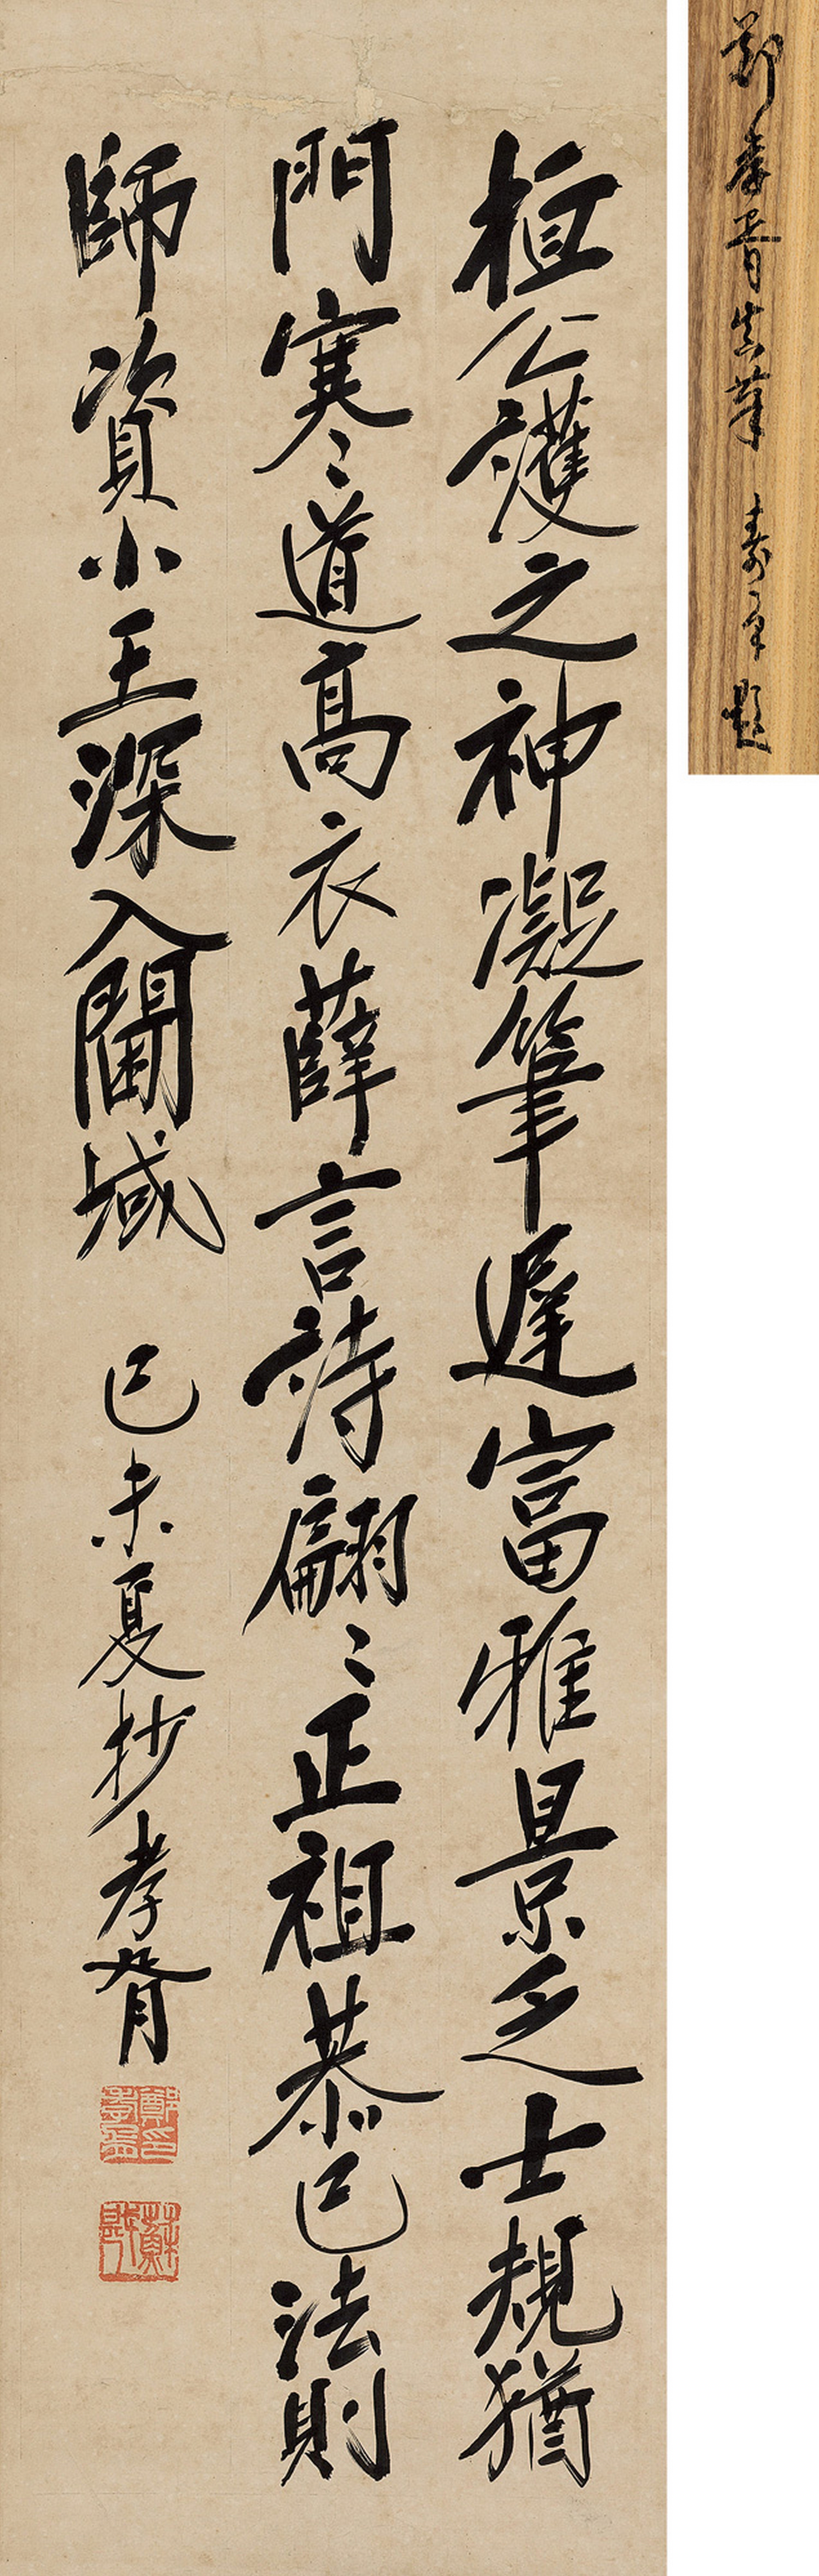 桓公護之神凝筆遲富雅景乏士規猶
門寒々道高衣薛言詩翩々正祖恭己法則
師資小王深入閫域
己未夏抄孝胥
鄭印孝胥
蘇戡
鄭孝胥真筆 壽 題